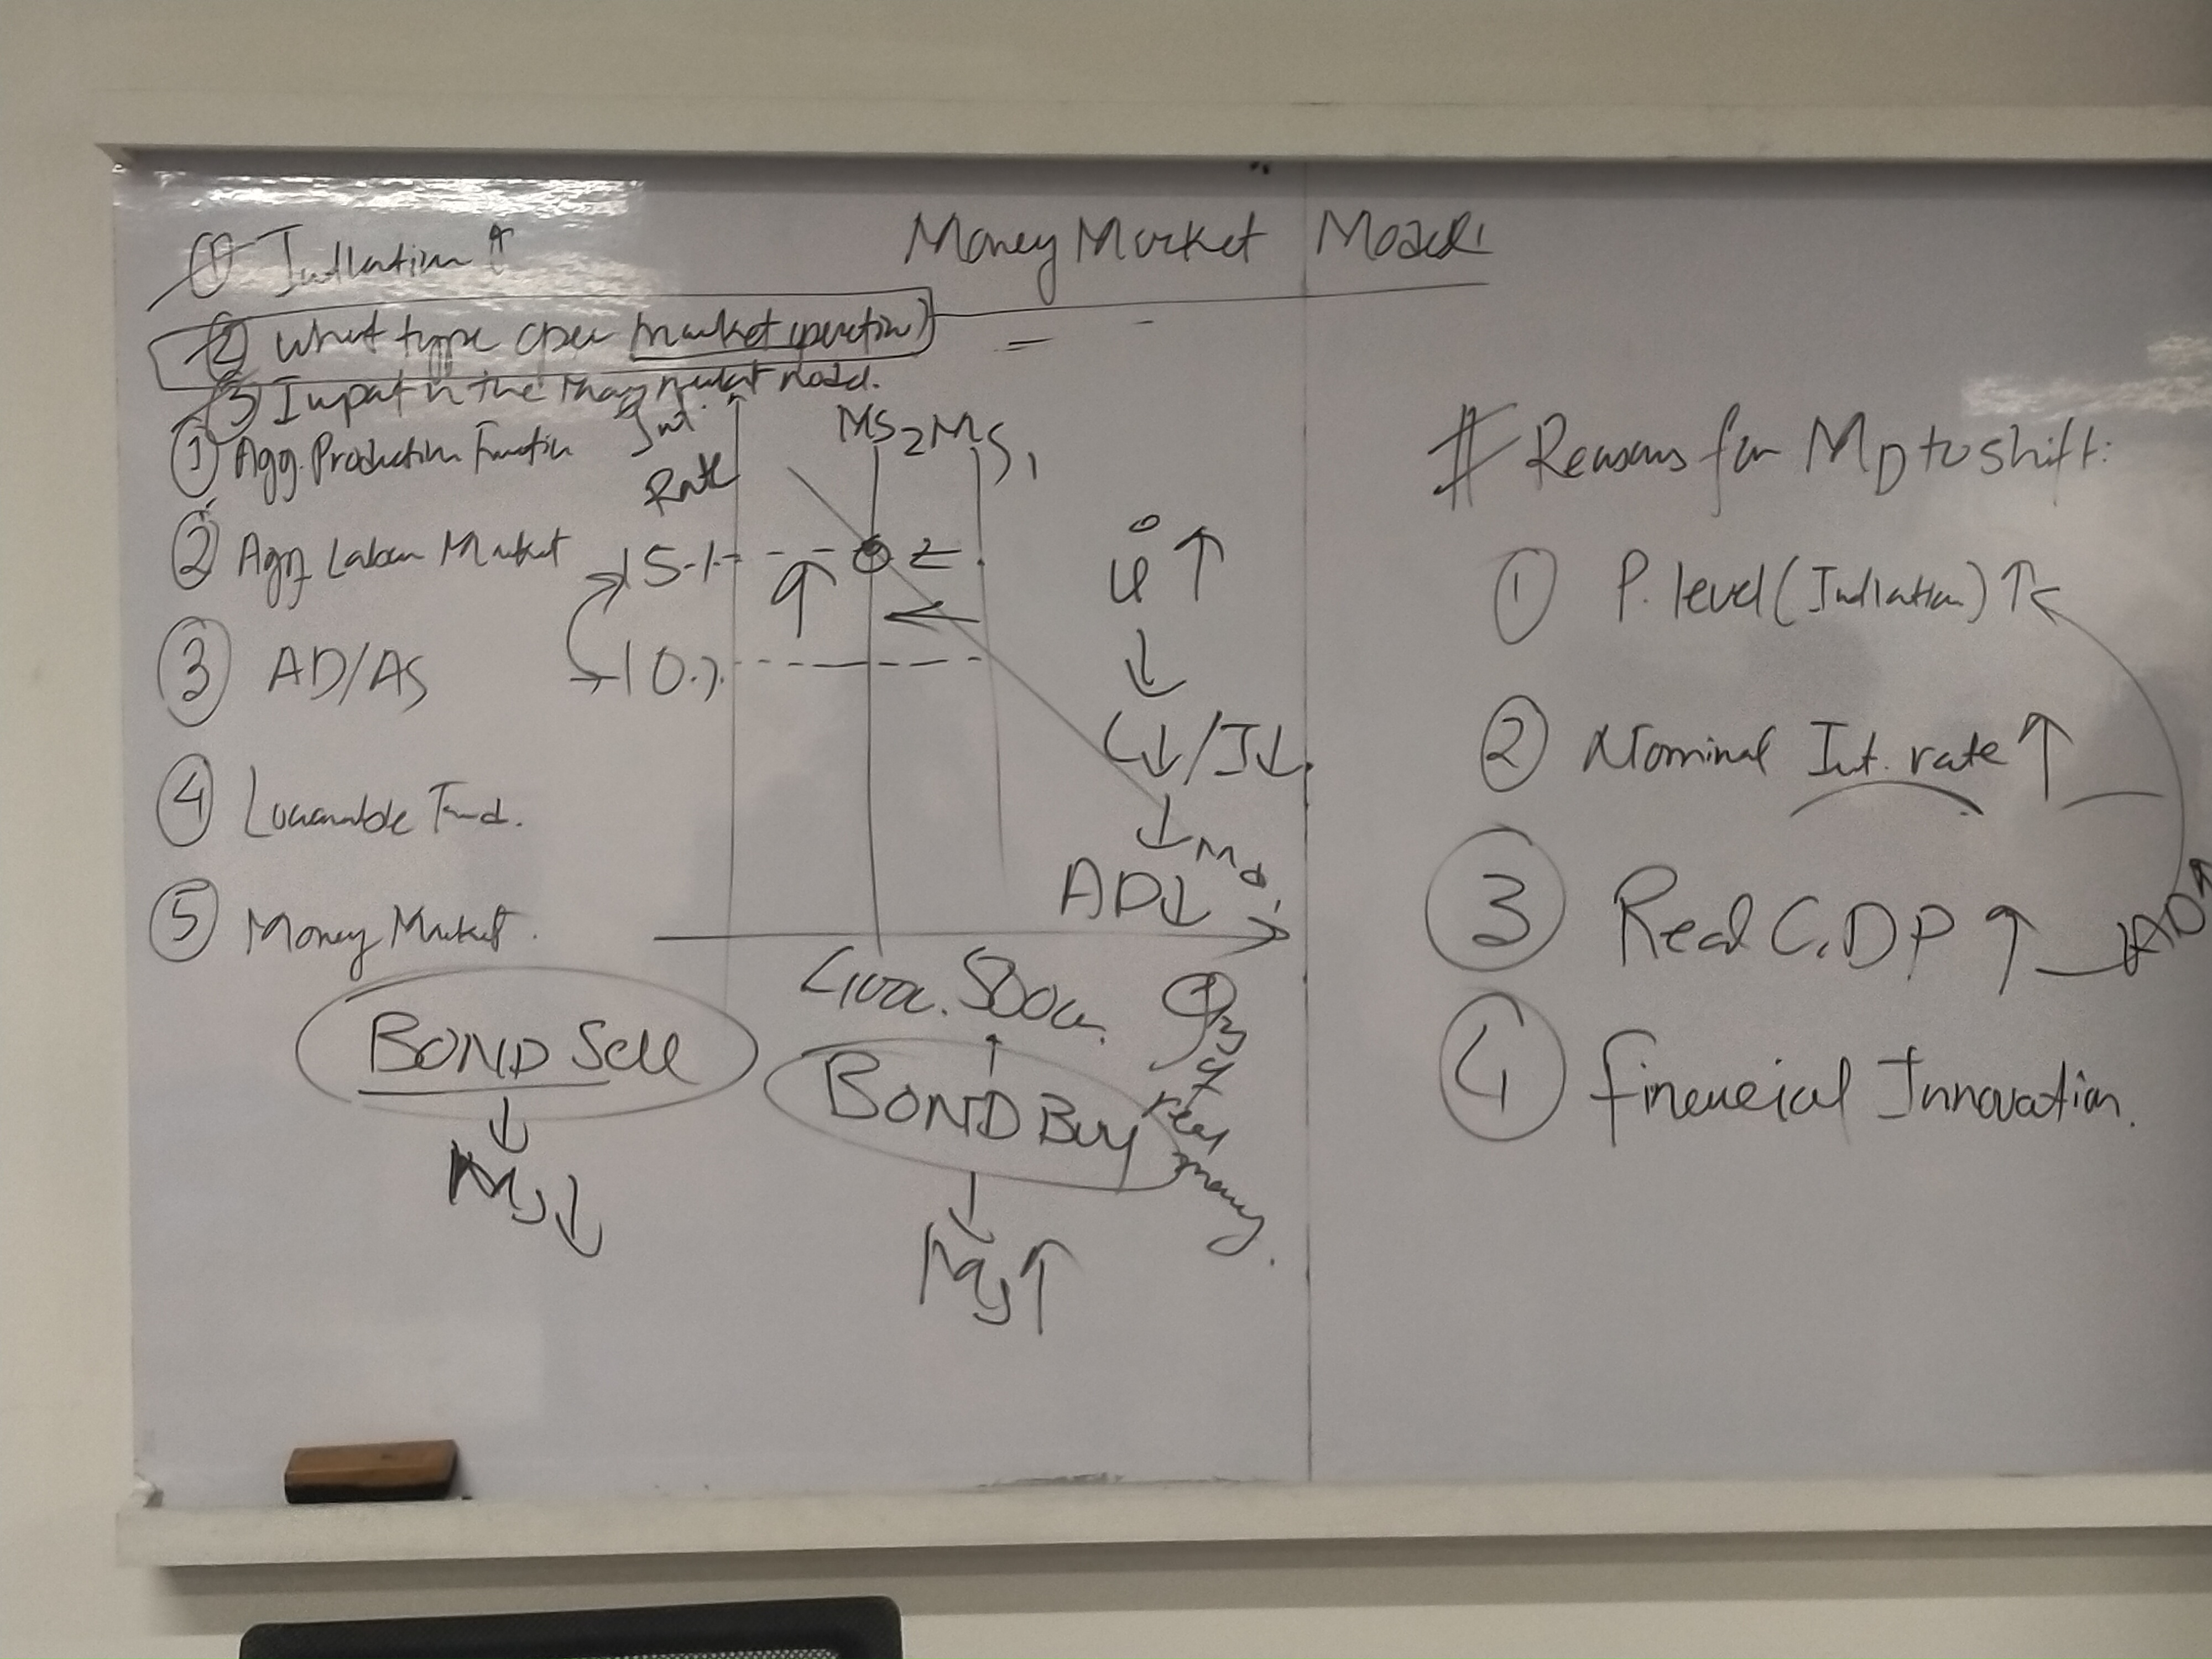 Money Market Model
① Inflation ↑
② What type open market operation)
③ Impact in the money market model.
① Agg. Production Function
② Agg Labour Market
③ AD/AS
④ Loanable Fund.
⑤ Money Market.
Int.
Rate
MS2 MS1
15%
10%
↑
↓
C↓/I↓
↓
AD↓
Md
500
Qty
of
real
money.
BOND Sell
↓
Ms↓
BOND Buy
↓
Ms↑
# Reasons for MD to shift:
① P. level (Inflation) ↑
② Nominal Int. rate ↑
③ Real GDP ↑
AD↑
④ Financial Innovation.